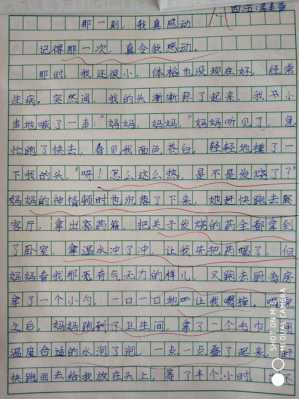 那一刻，我真感动
记得那一次，真令我感动。
那时，我还很小，体格也没现在好，经常
生病。突然间，我的头渐渐疼了起来，我小
声地喊了一声“妈妈，妈妈。”妈妈听见了，急
忙跑了快去，看见我面色苍白，轻轻地摸了一
下我的头“呀！怎么这么热，是不是发烧了？”
妈妈的神情顿时
客厅，拿出家药箱，把关于发烧的药全都拿到
了卧室，拿温水冲了冲，让我快把药喝了，但
妈妈看我那无有气无力的样儿，又跑去厨房
拿了一个小勺，一口一口地让我喝
之后，妈妈跑到了卫生间，拿了一个毛巾，用
温度合适的水润了润，一点一点叠了起来
快跑回去给我放在头上，等了半个小时